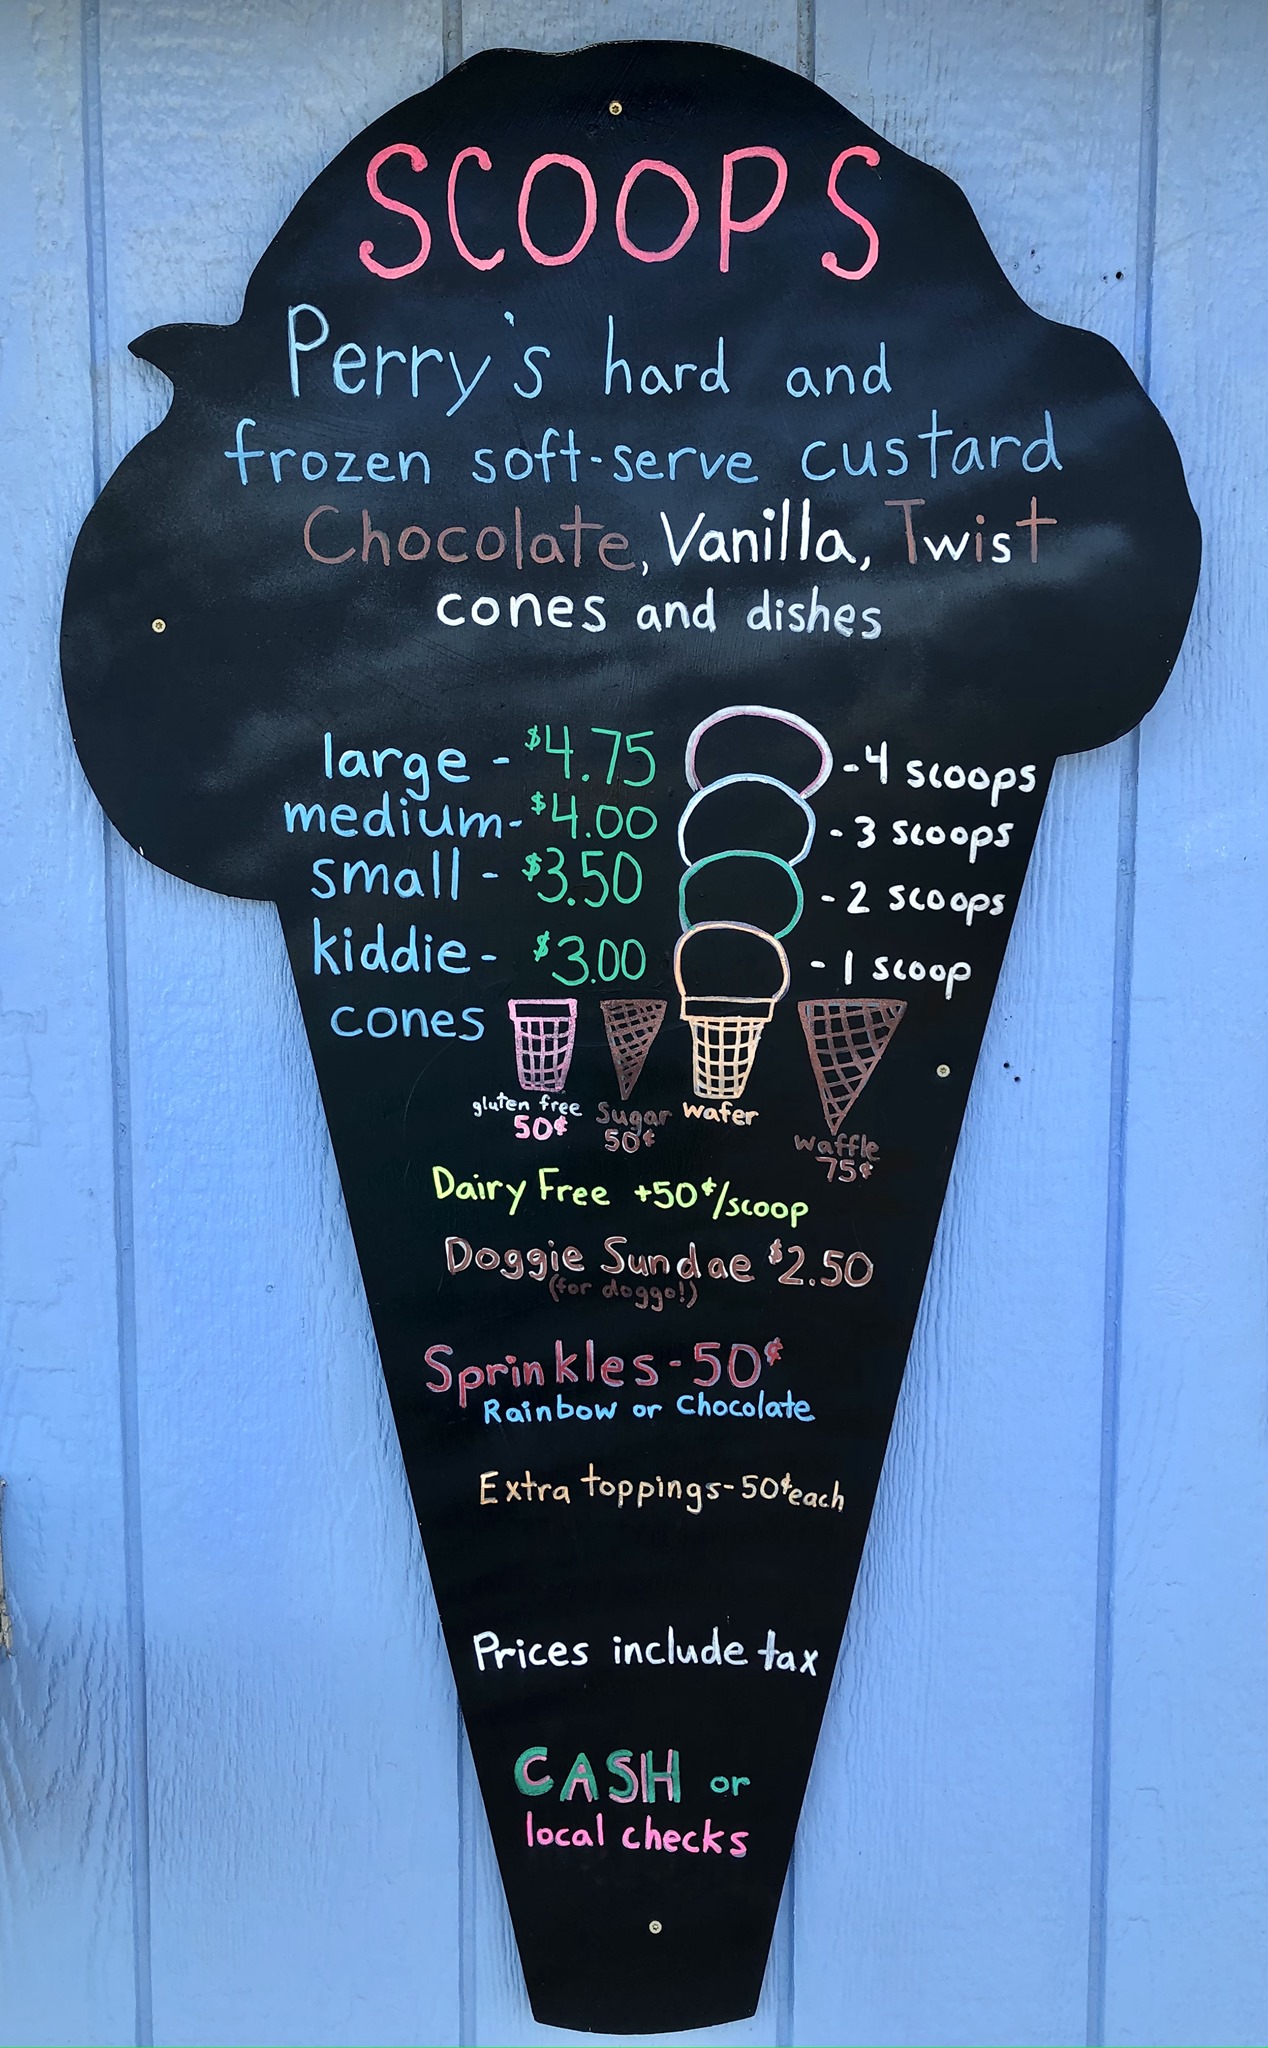 SCOOPS
Perry's hard and
frozen soft-serve custard
Chocolate, Vanilla, Twist
cones and dishes
large - $4.75 - 4 scoops
medium - $4.00 - 3 scoops
small - $3.50 - 2 scoops
kiddie - $3.00 - 1 scoop
cones
gluten free 50¢
Sugar 50¢
wafer
waffle 75¢
Dairy Free +50¢/scoop
Doggie Sundae $2.50
(for doggo!)
Sprinkles - 50¢
Rainbow or Chocolate
Extra toppings - 50¢ each
Prices include tax
CASH or
local checks